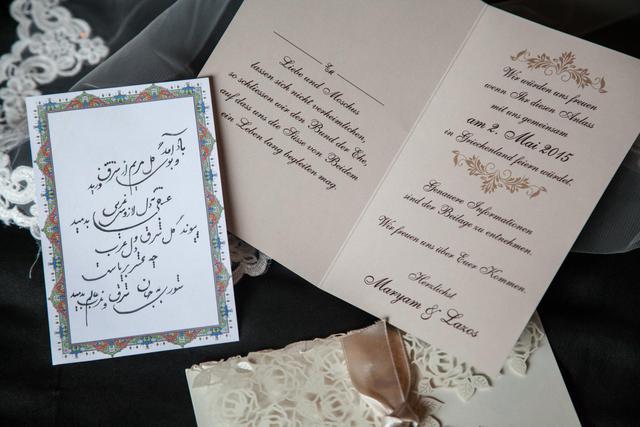 باد آمد و بوی گل مریم از شرق وزید
پیوند گل شرق و دل غرب
شوری به جان شرق و غرب عالم بدمید
Liebe und Moschus
lassen sich nicht verheimlichen,
so schliessen wir den Bund der Ehe,
auf dass uns die Süsse von Beidem
ein Leben lang begleiten mag.
Wir würden uns freuen
wenn Ihr diesen Anlass
mit uns gemeinsam
am 2. Mai 2015
in Griechenland feiern würdet.
Genauere Informationen
sind der Beilage zu entnehmen.
Wir freuen uns über Euer Kommen.
Herzlichst
Maryam & Lazos